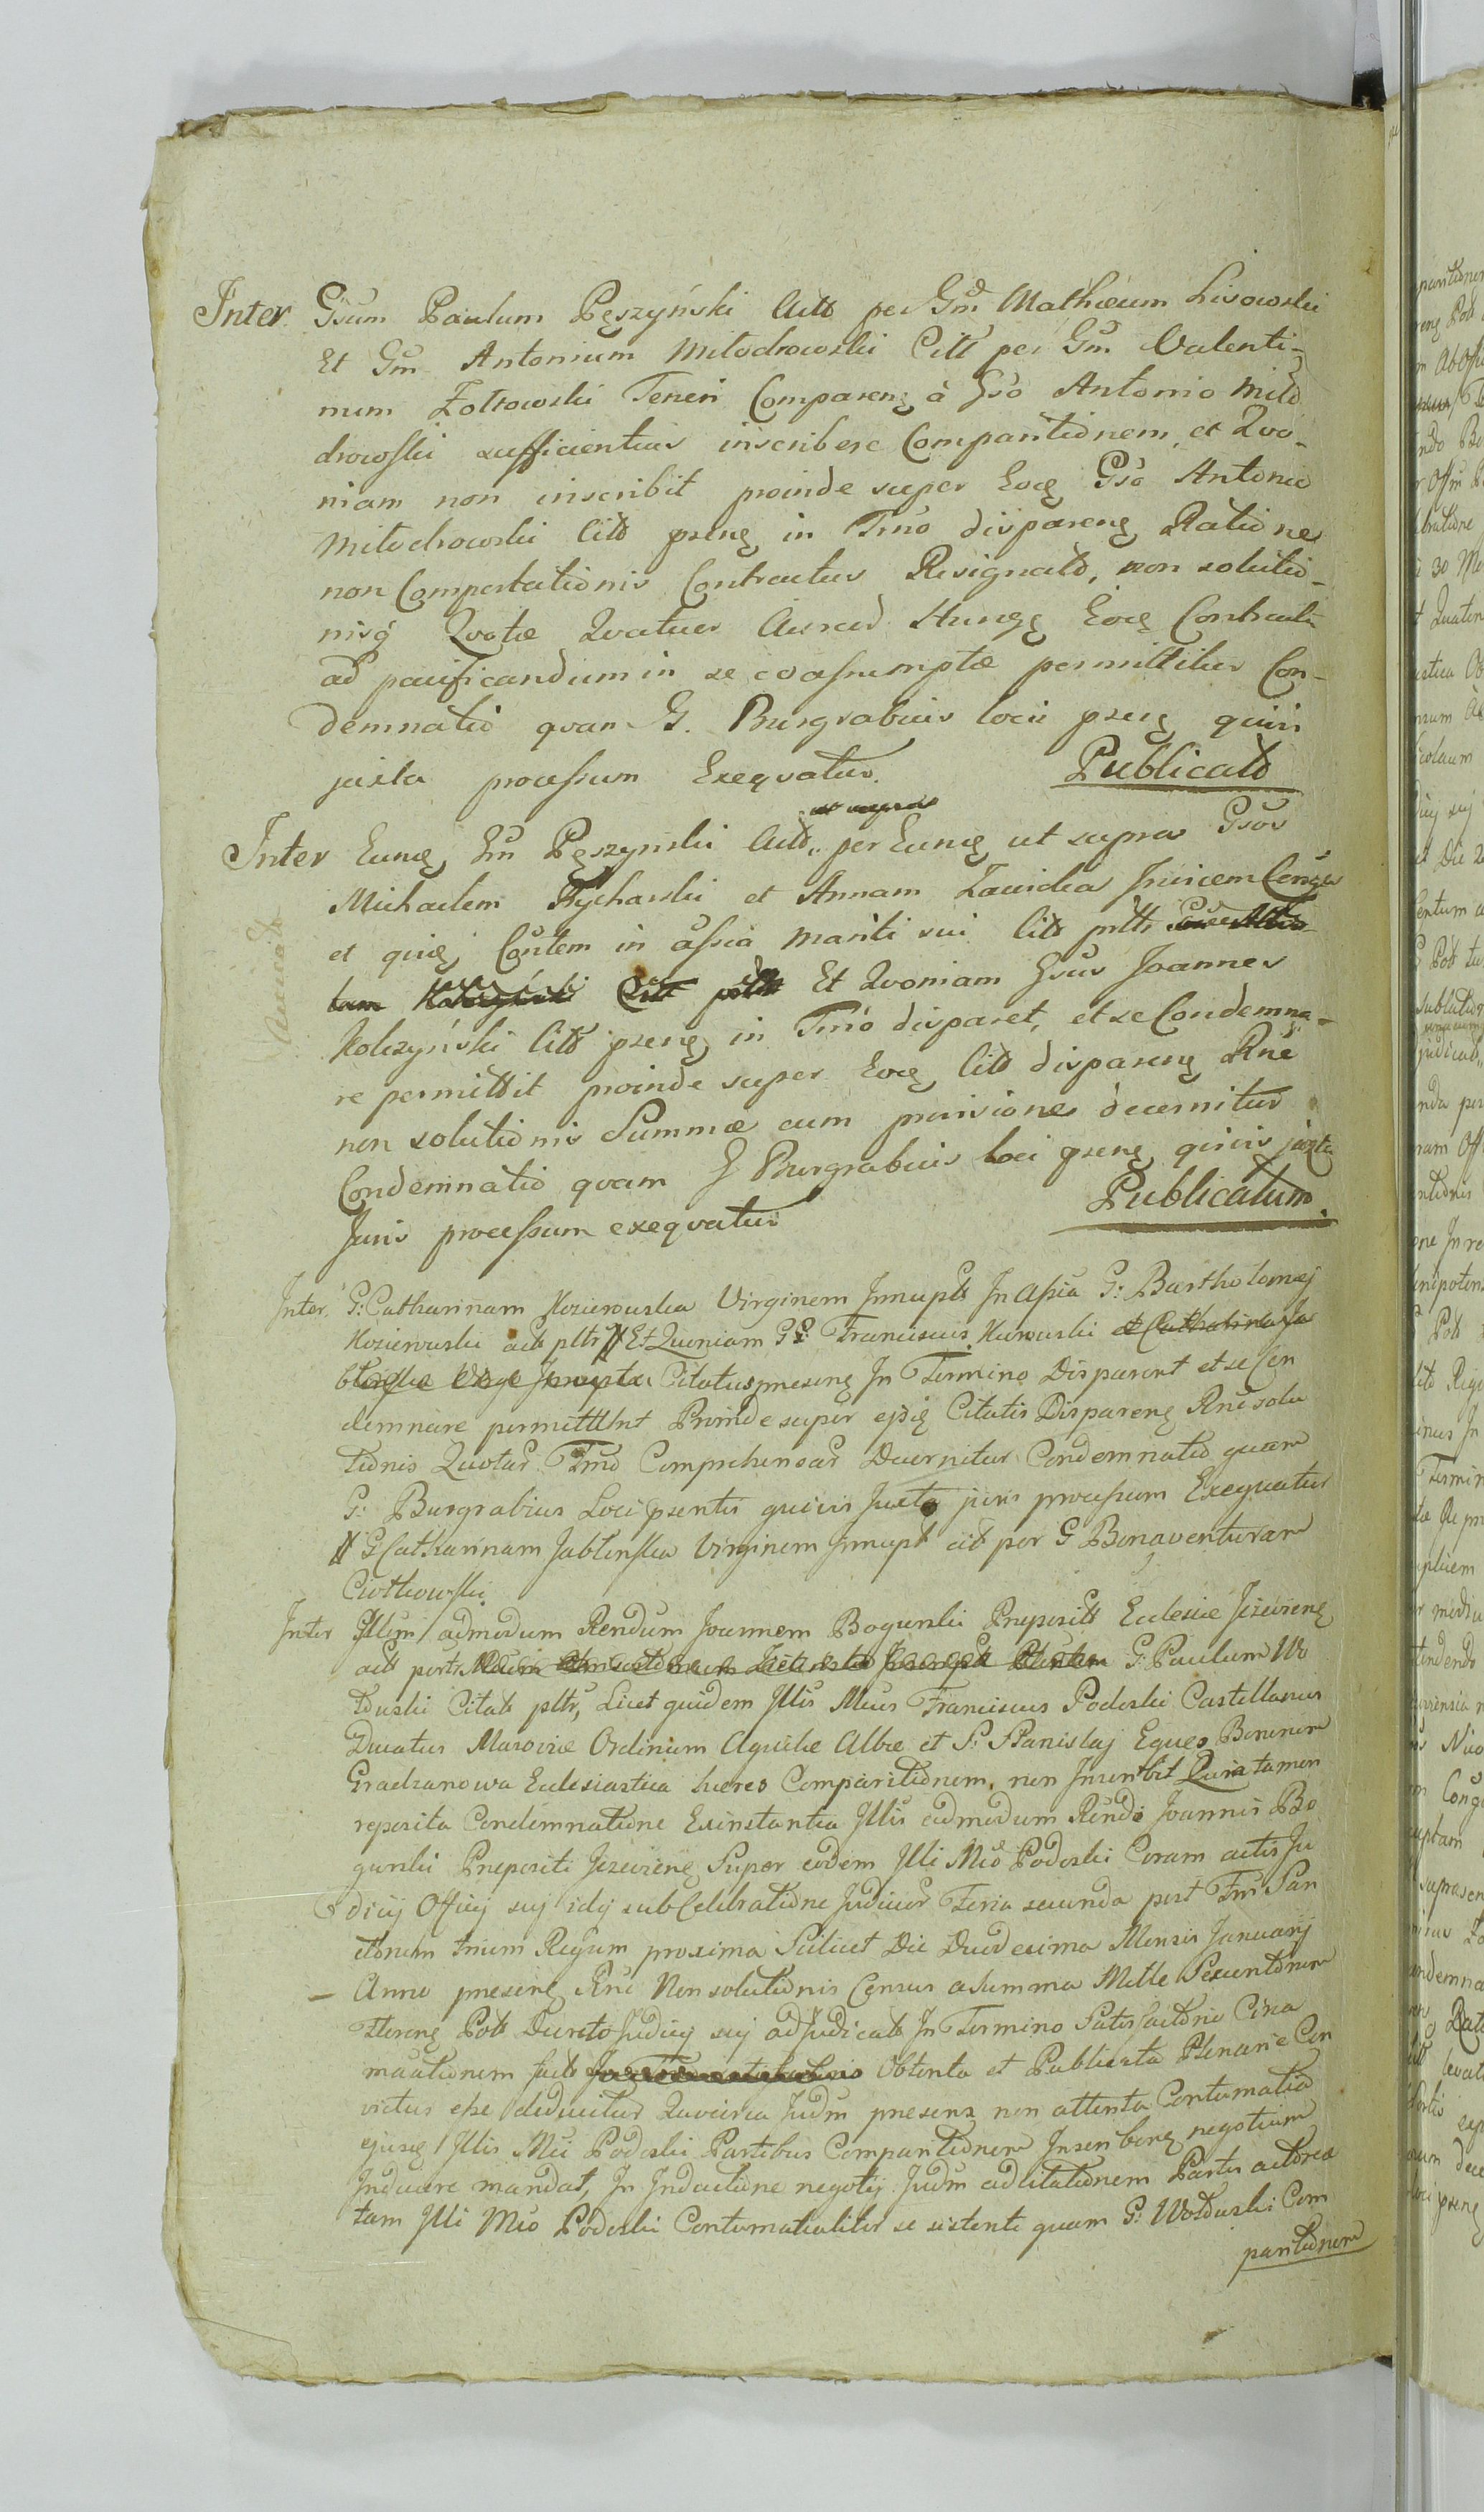 Inter Gsum Paulum Pęszyński Actō per Gm Mathæum Lisowski
Et Gm Antonium Miłodrowski Citt per Gm Valenti-
num Zółtowski Teneri Comparenę à Gso Antonio Miło
drowski sufficientius inscribere Comparitionem, et Quo-
niam non inscribit proinde super Eoę Gso Antonio
Miłodrowski Citō psenę in Tmo disparenę Ratione
non Comportationis Contractus Resignatō, non solutio-
nisq Quotæ Quatuor Aureor Hungę Eoę Contractu
ad pacificandum in se coassumptæ permittitur Con-
demnatio quam G. Burgrabius loci psenę quivis
juxta processum Exequatur. Publicatō
Inter Eunę Gm Pęszyński Actō per Eunę ut supra Gsos
Michaelem Rycharski et Annam Invicem Conges
et quię Contem in assia mariti sui Citō
Et Quoniam Gsus Joannes
Kolczyński Citō psenę in Tmo disparet, et se Condemna-
re permittit proinde super Eoę Citō disparenę Rne
non solutionis Summæ cum provisione decernitur
Condemnatio quam G Burgrabius loci psenę quivis juxta
Juris processum exequatur Publicatum.
Inter G: Catharinam Koziewska Virginem Innuptā In Assia G: Bartholomęj
Koziewski actō pltr # Et Quoniam GG: Franciscus Kurowski
Citatus presenę In Termino Disparent et se Con
demnare permittunt Proinde super ejsdę Citatis Disparenę Rne solu
tionis Quotar Tmo Comprehensar Decernitur Condemnatio quam
G: Burgrabius Loci psentis quivis Juxta juris processum Exequatur
# G Catharinam Jabłonska Virginem Innupt citō per G Bonaventuram
Ciotkowski
Inter Illem admodum Rendum Joannem Bogunski Prepositō Ecclesiæ
actō G: Paulum Wo
Citatō pltr, Licet quidem Illis Mcus Franciscus Podoski Castellanus
Ducatus Masoviæ Ordinum Aquilæ Albæ et S: Stanislaj Eques Bonorum
Gradzanowa Ecclesiastica hæres Comparitionem, non Inscribit Quia tamen
reposita Condemnatione Exinstantia Illis admodum Rendi Joannis Bo
gunski Prepositi Super eodem Illi Mco Podoski Coram actis Ju
dicij Officij suj sub Celebratione Judicior Feria secunda post Fm San
ctorum trium Regum proxima Scilicet Die Duodecima Mensis Januarij
Anno presenę Rne Non solutionis Census a Summa Mille Sexcentorum
Florenę Polō Decreto Judicij suj adJudicatō In Termino Satisfactionis Circa
mactionem Obtenta et Publicata Plenarie Con
victus esse deducitur Quocirca Judm presens non attenta Contumatia
ejusdę Illis Mci Podoski Partibus Comparitionem Inscribenę negotium
Inducere mandat, In Inductione negotij Judm ad citationem Partis actorea
tam Illi Mco Podoski Contumatialiter se sistenti quam G: Com
paritionem